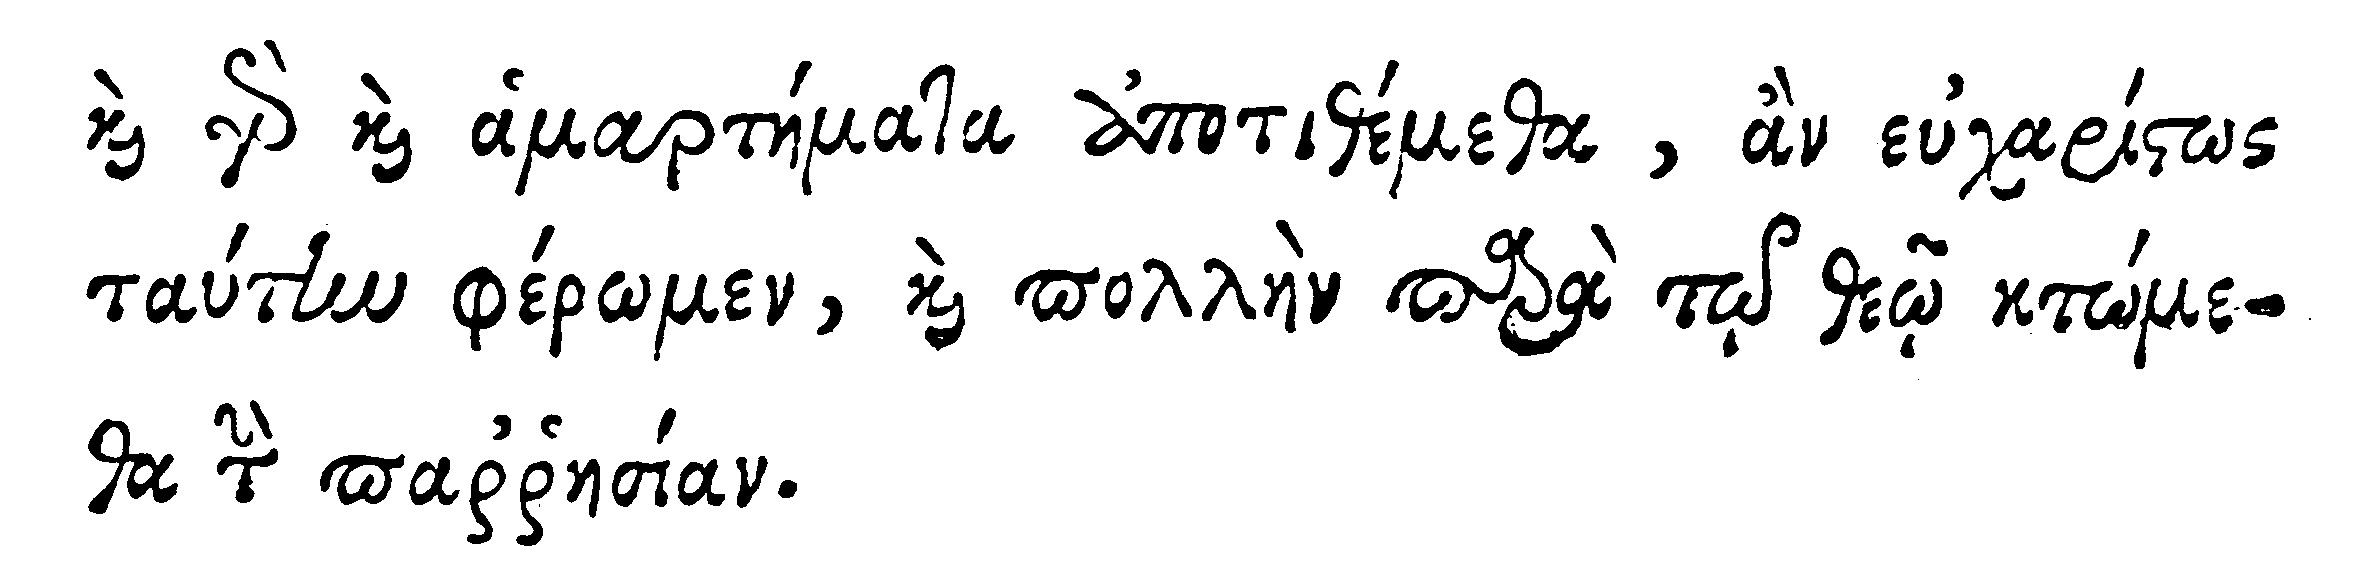 καὶ γὰρ καὶ ἁμαρτήματα ἀποτιθέμεθα, ἂν εὐχαρίστως
ταύτην φέρωμεν, καὶ πολλὴν παρὰ τῷ θεῷ κτώμε-
θα τὴν παῤῥησίαν.